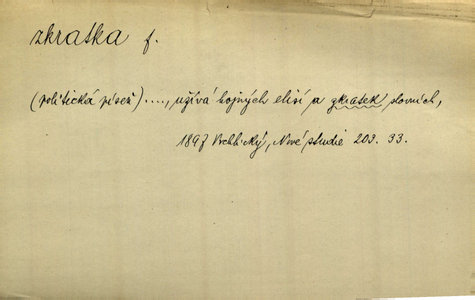 zkratka f.
(politická píseň)...., užívá hojných elisí a zkratek slovních,
1897 Vrchlický, Nové studie 203. 33.